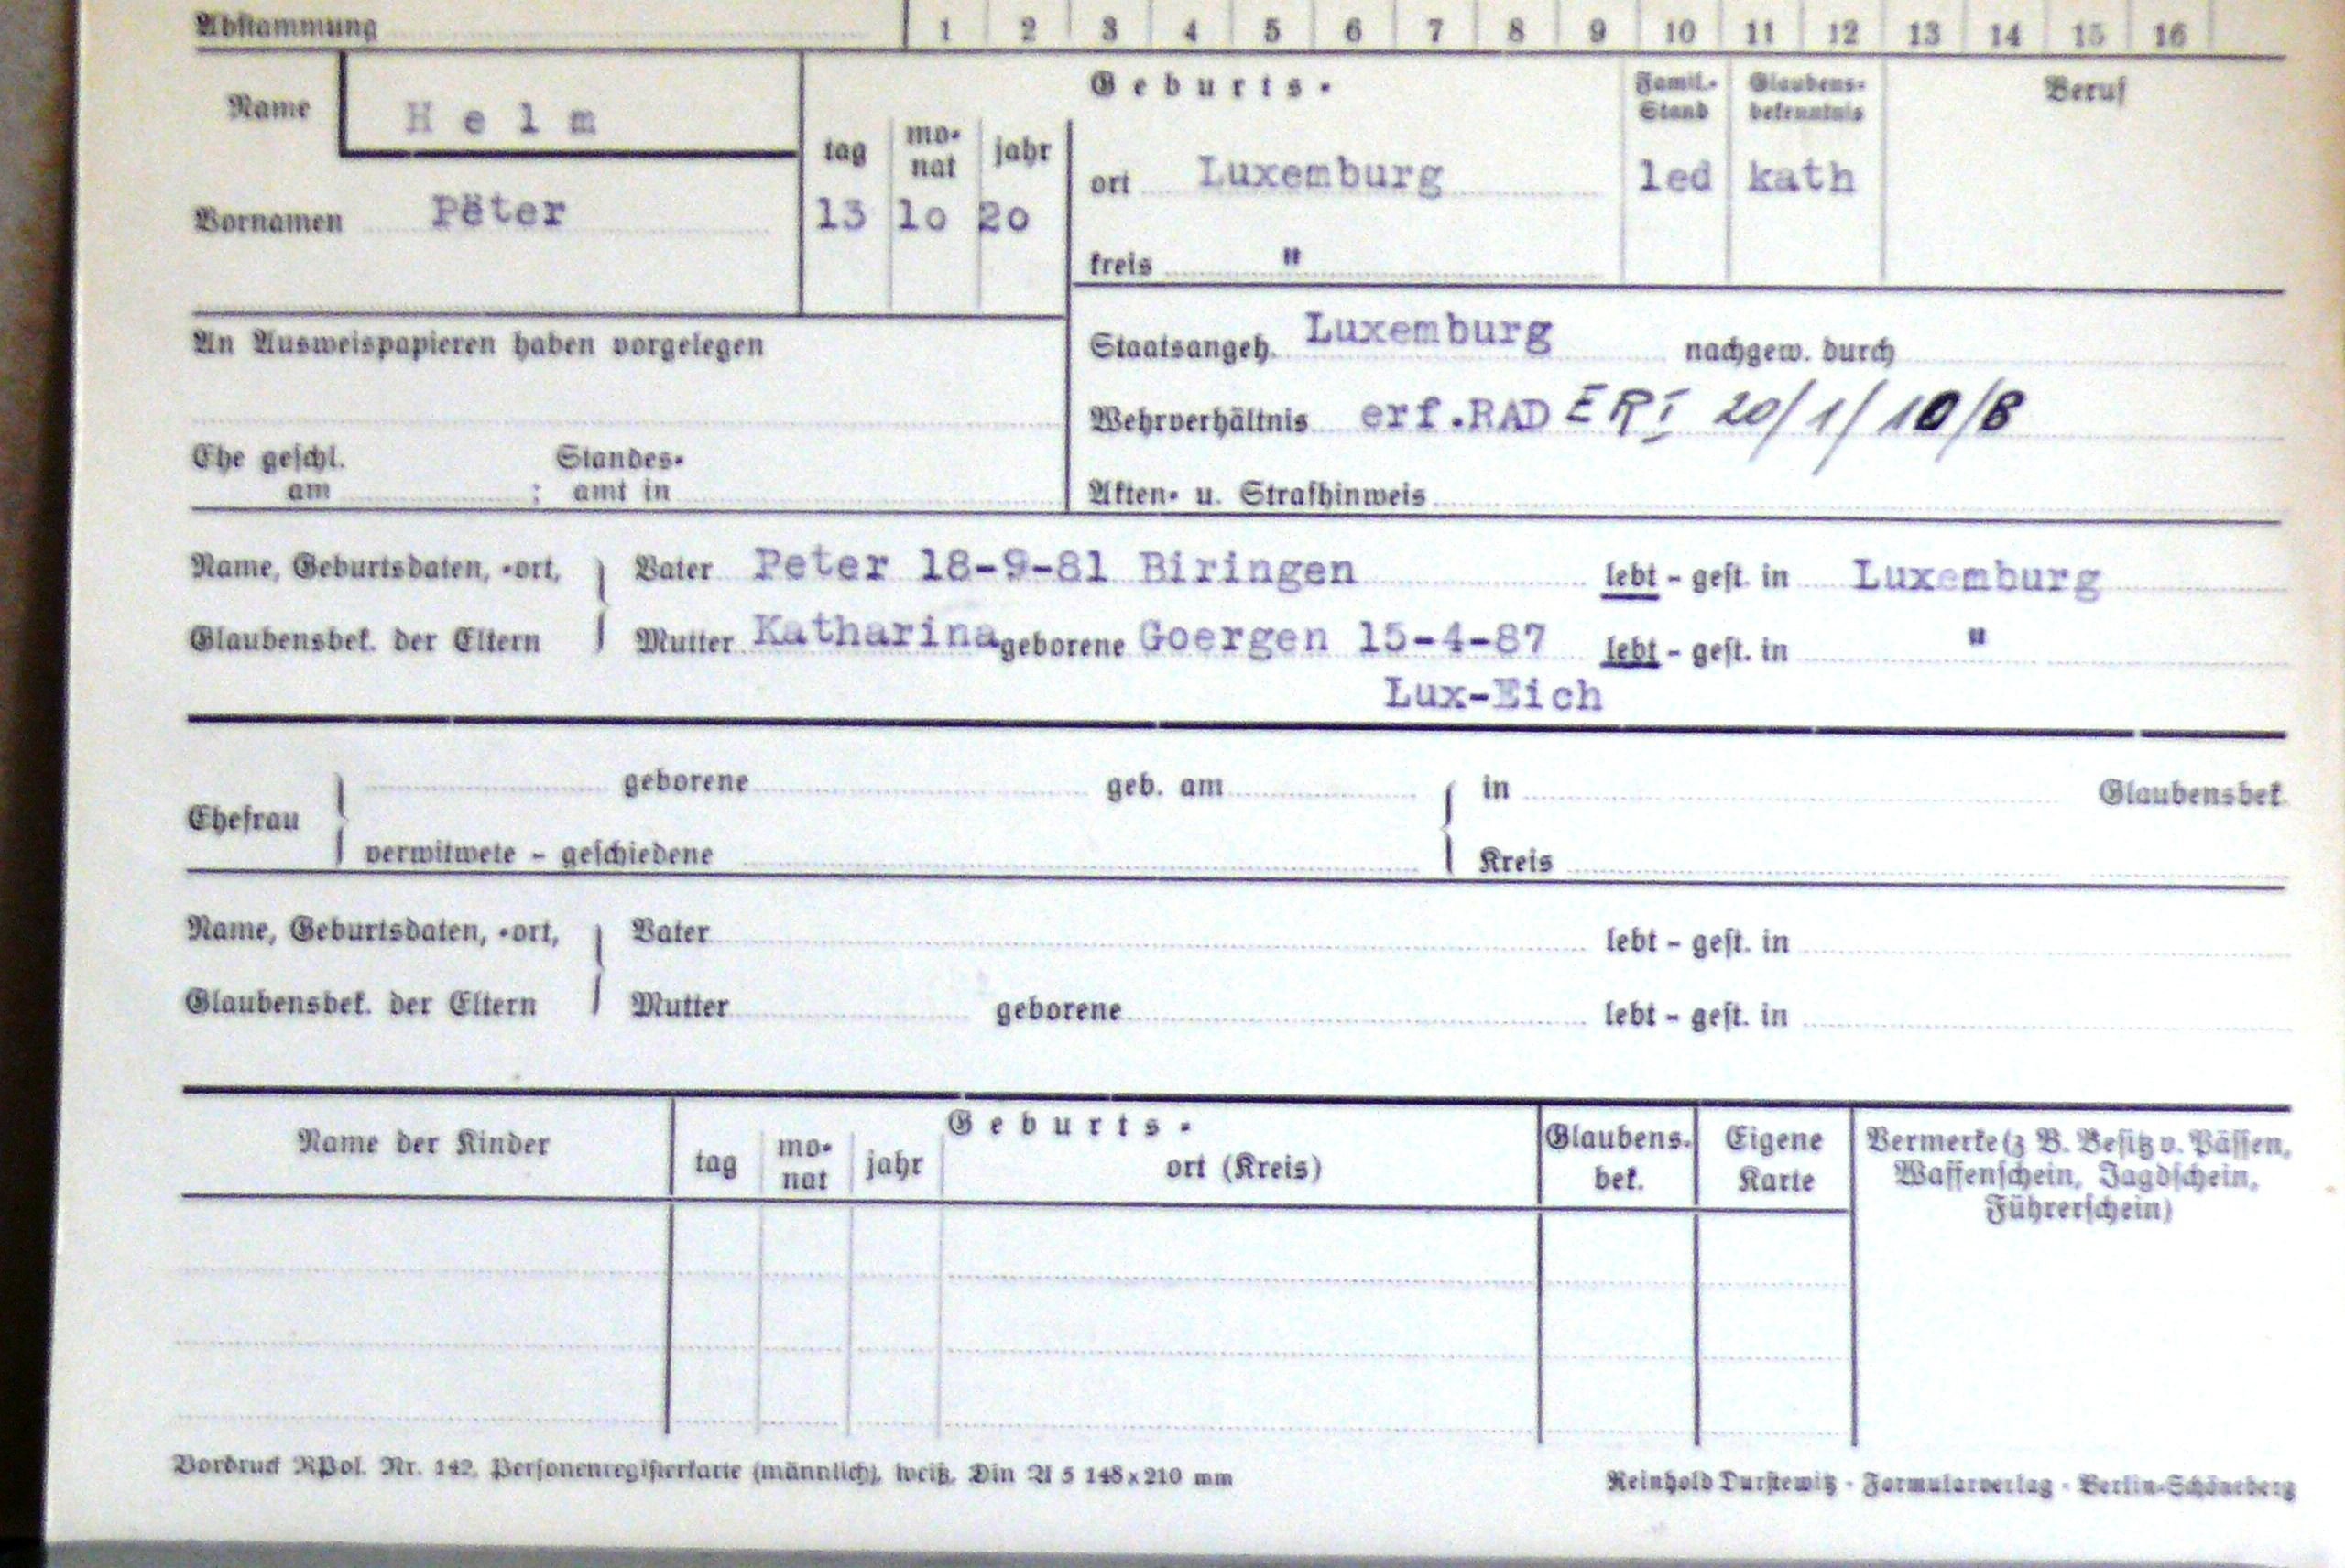 Abstammung 1 2 3 4 5 6 7 8 9 10 11 12 13 14 15 16
Name Helm
Geburts-
Famil.- Stand
Glaubens- bekenntnis
Beruf
tag mo- nat jahr
ort Luxemburg led kath
Vornamen Pëter 13 10 20
kreis "
An Ausweispapieren haben vorgelegen
Staatsangeh. Luxemburg nachgew. durch
Wehrverhältnis erf.RAD ERI 20/1/10/8
Ehe geschl. Standes-
am : amt in
Akten- u. Strafhinweis
Name, Geburtsdaten, -ort, Vater Peter 18-9-81 Biringen lebt - gest. in Luxemburg
Glaubensbek. der Eltern Mutter Katharina geborene Goergen 15-4-87 lebt - gest. in "
Lux-Eich
geborene geb. am in Glaubensbek.
Ehefrau
verwitwete - geschiedene Kreis
Name, Geburtsdaten, -ort, Vater lebt - gest. in
Glaubensbek. der Eltern Mutter geborene lebt - gest. in
Name der Kinder
Geburts-
tag mo- nat jahr ort (Kreis)
Glaubens- bek.
Eigene Karte
Vermerke (z B. Besitz v. Pässen,
Waffenschein, Jagdschein,
Führerschein)
Vordruck RPol. Nr. 142, Personenregisterkarte (männlich), weiß, Din A 5 148x210 mm
Reinhold Durstewitz - Formularverlag - Berlin-Schöneberg